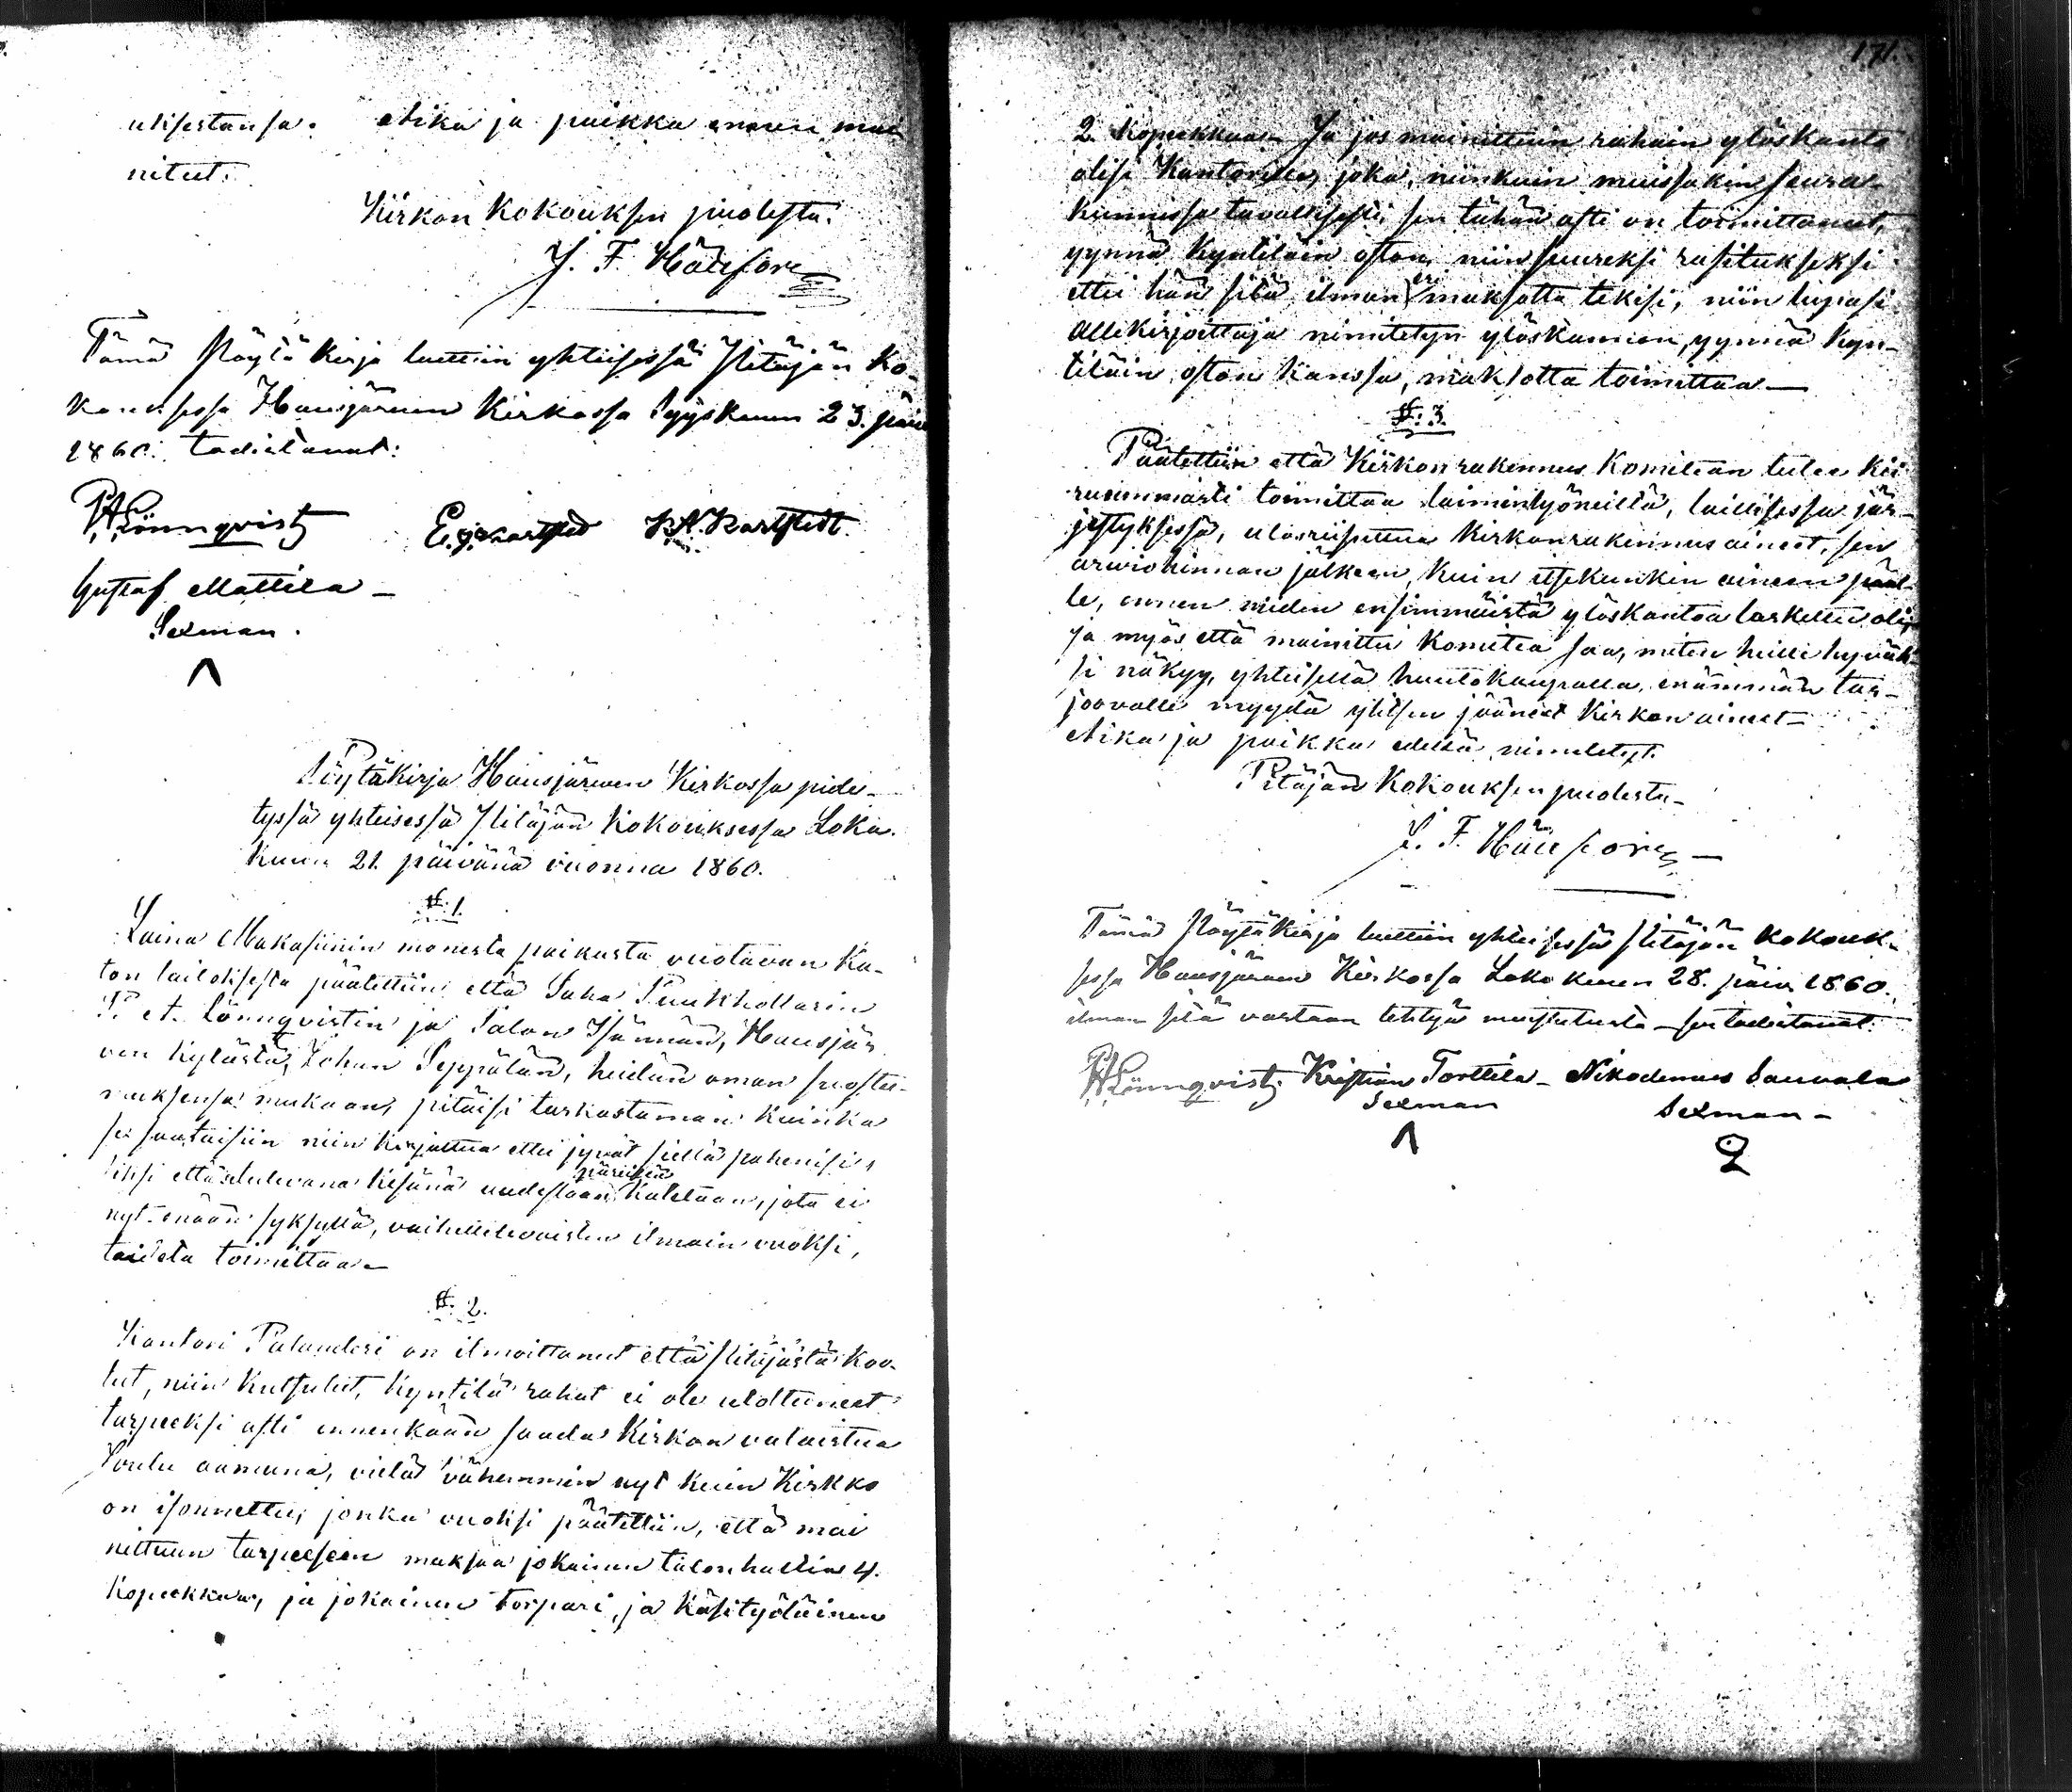 uksestansa. Aika ja paikka ennen mai
nitut.
Kirkon Kokouksen puolesta.
J. F. Hällfors
Tämä Pöytä Kirja luettiin yhteisessä Pitäjän Ko-
kouksessa Hausjärven Kirkossa Syyskuun 23. päiv
1860. todistavat:
P A Lönnqvist E. J. Karsted K. A. Karstedt.
Gustaf Mattila –
Sexman.
Pöytäkirja Hausjärwen Kirkossa pide-
tyssä yhteisessä Pitäjän Kokouksessa Loka-
kuun 21. päivänä vuonna 1860.
§. 1.
Laina Makasiinin monesta paikasta vuotavan Ka-
ton laitoksesta päätettiin että Saha Puukhollarin
P. A. Lönnqvistin ja Talon Isännän, Hausjär
ven Kylästä, Johan Seppälän, heidän oman suostu-
muksensa mukaan, pitäisi tarkastaman kuinka
se saataisiin niin korjattua ettei jyvät siellä pahenisi,
siksi että tulevana kesänä uudestaan päreillä katetaan, jota ei
nyt enään syksyllä, vaihettelevaisten ilmain vuoksi,
taideta toimittaa –
§. 2.
Kantori Palanderi on ilmoittanut että Pitäjästä koo-
tut, niin kutsutut, kyntilä rahat ei ole ulottuneet
tarpeeksi asti ennenkään saada Kirkon valaistua
Joulu aamuna, vielä vähemmin nyt kuin Kirkko
on isonnettu; jonka vuoksi päätettiin, että mai
nittuun tarpeeseen maksaa jokainen talonhaltia 4.
kopeekkaa, ja jokainen torpari, ja käsityöläinen
171.
2. kopeekkaa – Ja jos mainittuin rahain ylöskanto
olisi Kantorille, joka, niinkuin muissakin seura-
kunnissa tavallisesti, sen tähän asti on toimittanut,
ynnä kyntiläin oston, niin suureksi rasitukseksi
ettei hän sitä ilman maksotta tekisi, niin lupasi
allekirjoittaja nimitetyn ylöskannon, ynnä kyn-
tiläin oston kanssa, maksotta toimittaa –
§. 3.
Päätettiin että Kirkonrakennus Komitean tulee kii-
ruummasti toimittaa laiminlyöneillä, laillisessa jär-
jestyksessä, ulosriisuttua kirkonrakennus aineet, sen
arviohinnan jälkeen, kuin itsekunkin aineen pääl-
le, ennen niiden ensimmäistä ylöskantoa laskettu oli,
ja myös että mainittu Komitea saa, miten heille hyväk-
si näkyy, yhteisellä huutokaupalla, enämmän tar-
joovalle myydä ylitsen jääneet Kirkon aineet –
Aika ja paikka edellä nimitetyt.
Pitäjän Kokouksen puolesta –
J. F. Hällfors –
Tämä Pöytäkirja luettiin yhteisessä Pitäjän Kokouk-
sessa Hausjärven Kirkossa Lokakuun 28. päiv 1860.
ilman sitä vastaan tehtyä muistutusta – sen todistavat:
P A Lönnqvist. Kristian Torttila – Nikodemus Sauvala
Sexman Sexman –